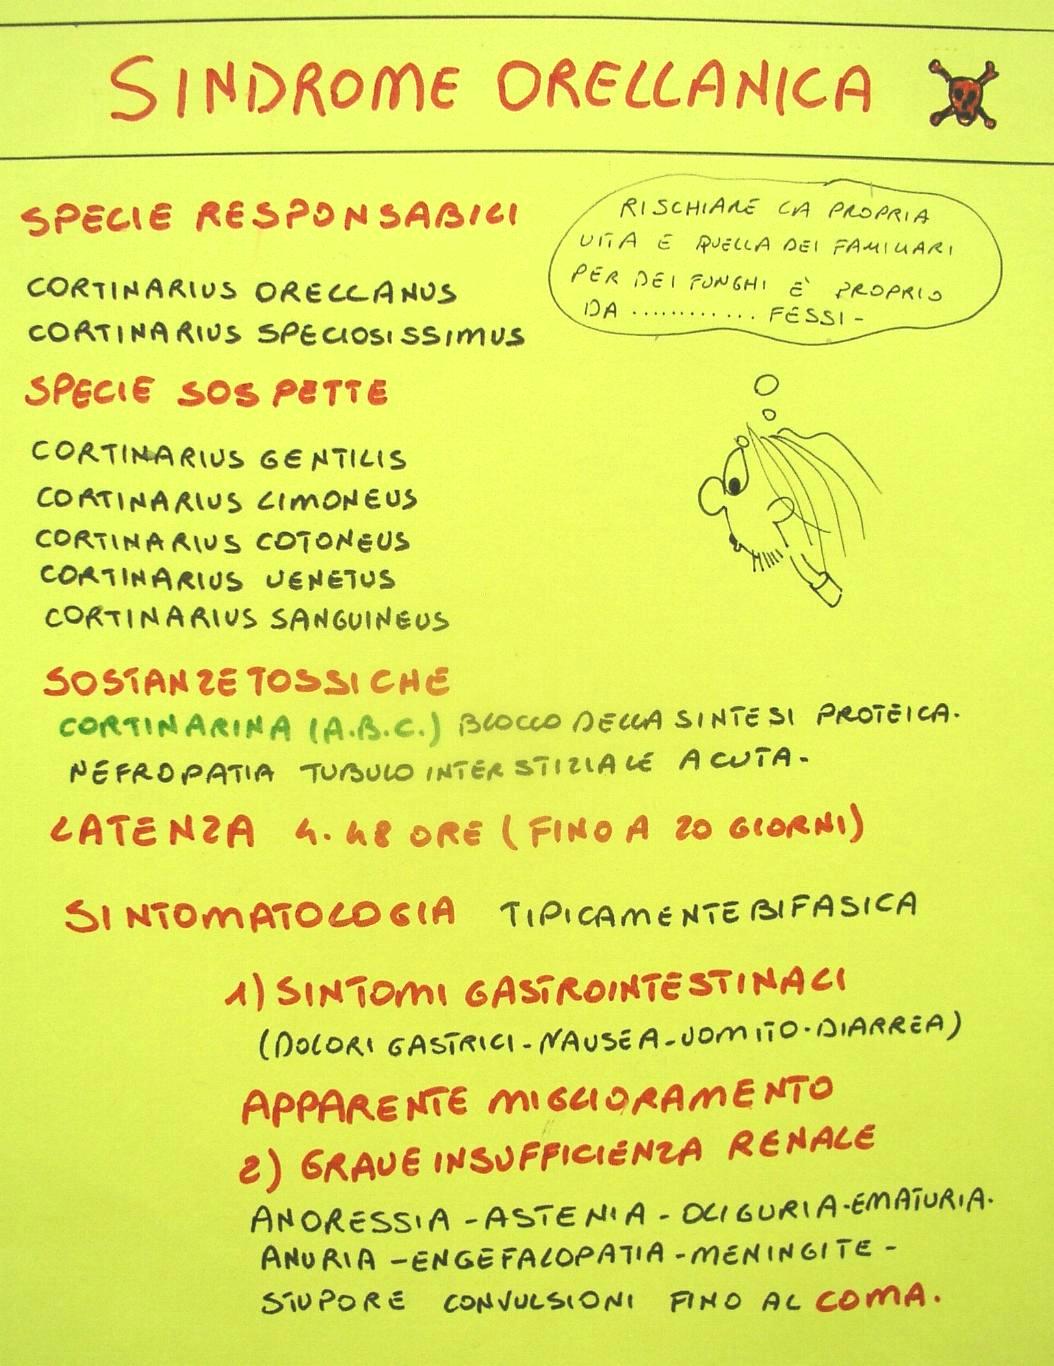 SINDROME ORELLANICA
SPECIE RESPONSABILI
RISCHIARE LA PROPRIA
VITA E QUELLA DEI FAMILIARI
PER DEI FUNGHI E' PROPRIO
DA ............ FESSI -
CORTINARIUS ORELLANUS
CORTINARIUS SPECIOSISSIMUS
SPECIE SOSPETTE
CORTINARIUS GENTILIS
CORTINARIUS LIMONEUS
CORTINARIUS COTONEUS
CORTINARIUS VENETUS
CORTINARIUS SANGUINEUS
SOSTANZE TOSSICHE
CORTINARINA (A.B.C.) BLOCCO DELLA SINTESI PROTEICA.
NEFROPATIA TUBULO INTERSTIZIALE ACUTA.
LATENZA 4. 48 ORE (FINO A 20 GIORNI)
SINTOMATOLOGIA TIPICAMENTE BIFASICA
1) SINTOMI GASTROINTESTINALI
(DOLORI GASTRICI - NAUSEA - VOMITO - DIARREA)
APPARENTE MIGLIORAMENTO
2) GRAVE INSUFFICIENZA RENALE
ANORESSIA - ASTENIA - OLIGURIA - EMATURIA.
ANURIA - ENGEFALOPATIA - MENINGITE -
STUPORE CONVULSIONI FINO AL COMA.